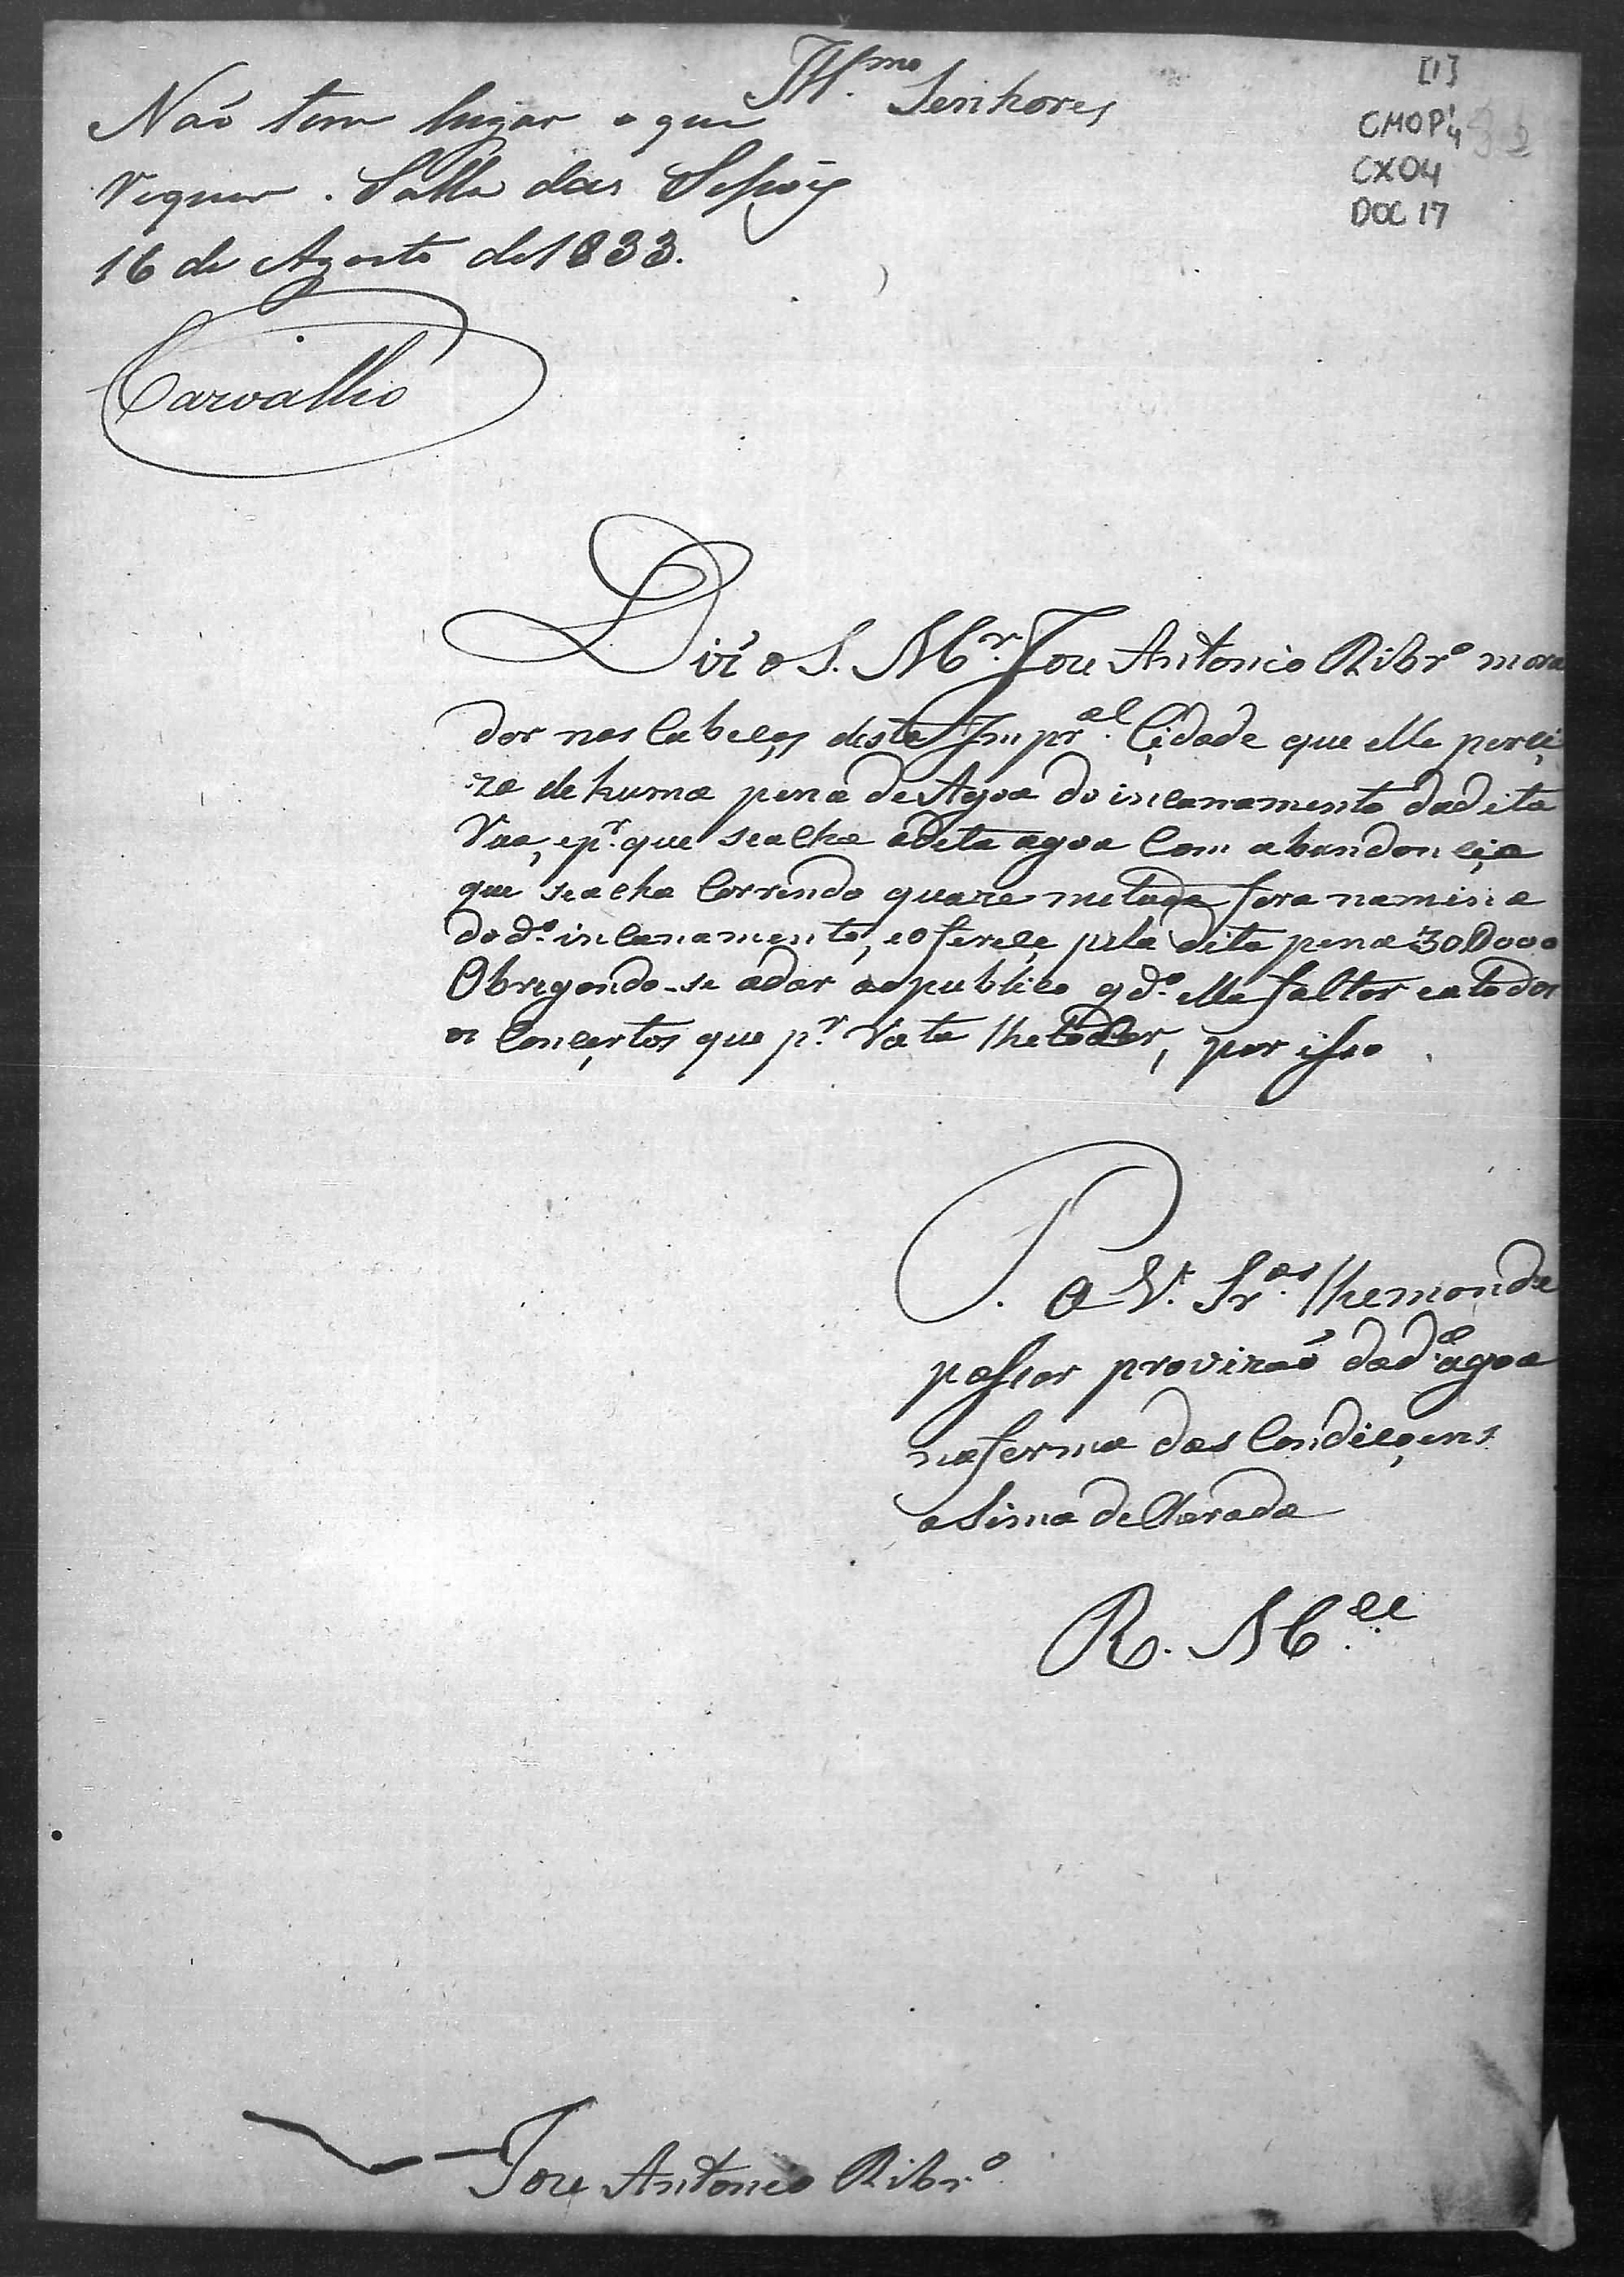 [1]
CMOP
CX04
DOC 17
Illmos. Senhores
Não tem lugar o que
requer. Salla das Sessoẽs
16 de Agosto de 1833.
Carvalho
Diz o S. Mr. Joze Antonio Ribro mora
dor nas Cabeças desta Impral. Çidade que elle perçi
za de huma pena de Agoa do incanamento dadita
Rua, epr. que seacha adita agoa Com abundonçia
que seacha Correndo quaze metade fora namina
dodo. incanamento, eofereçe pela dita pena 30D000
Obregondo-se adar aopublico qdo. ella faltar eatodos
os Conçertos que pr. Rata lhetocar, por isso
P. a V.ꝭ Sras. lhemonde
passar provizaõ dada. agoa
naforma das Condiçoens
asima declarada
R. Mce.
Joze Antonio Ribro.